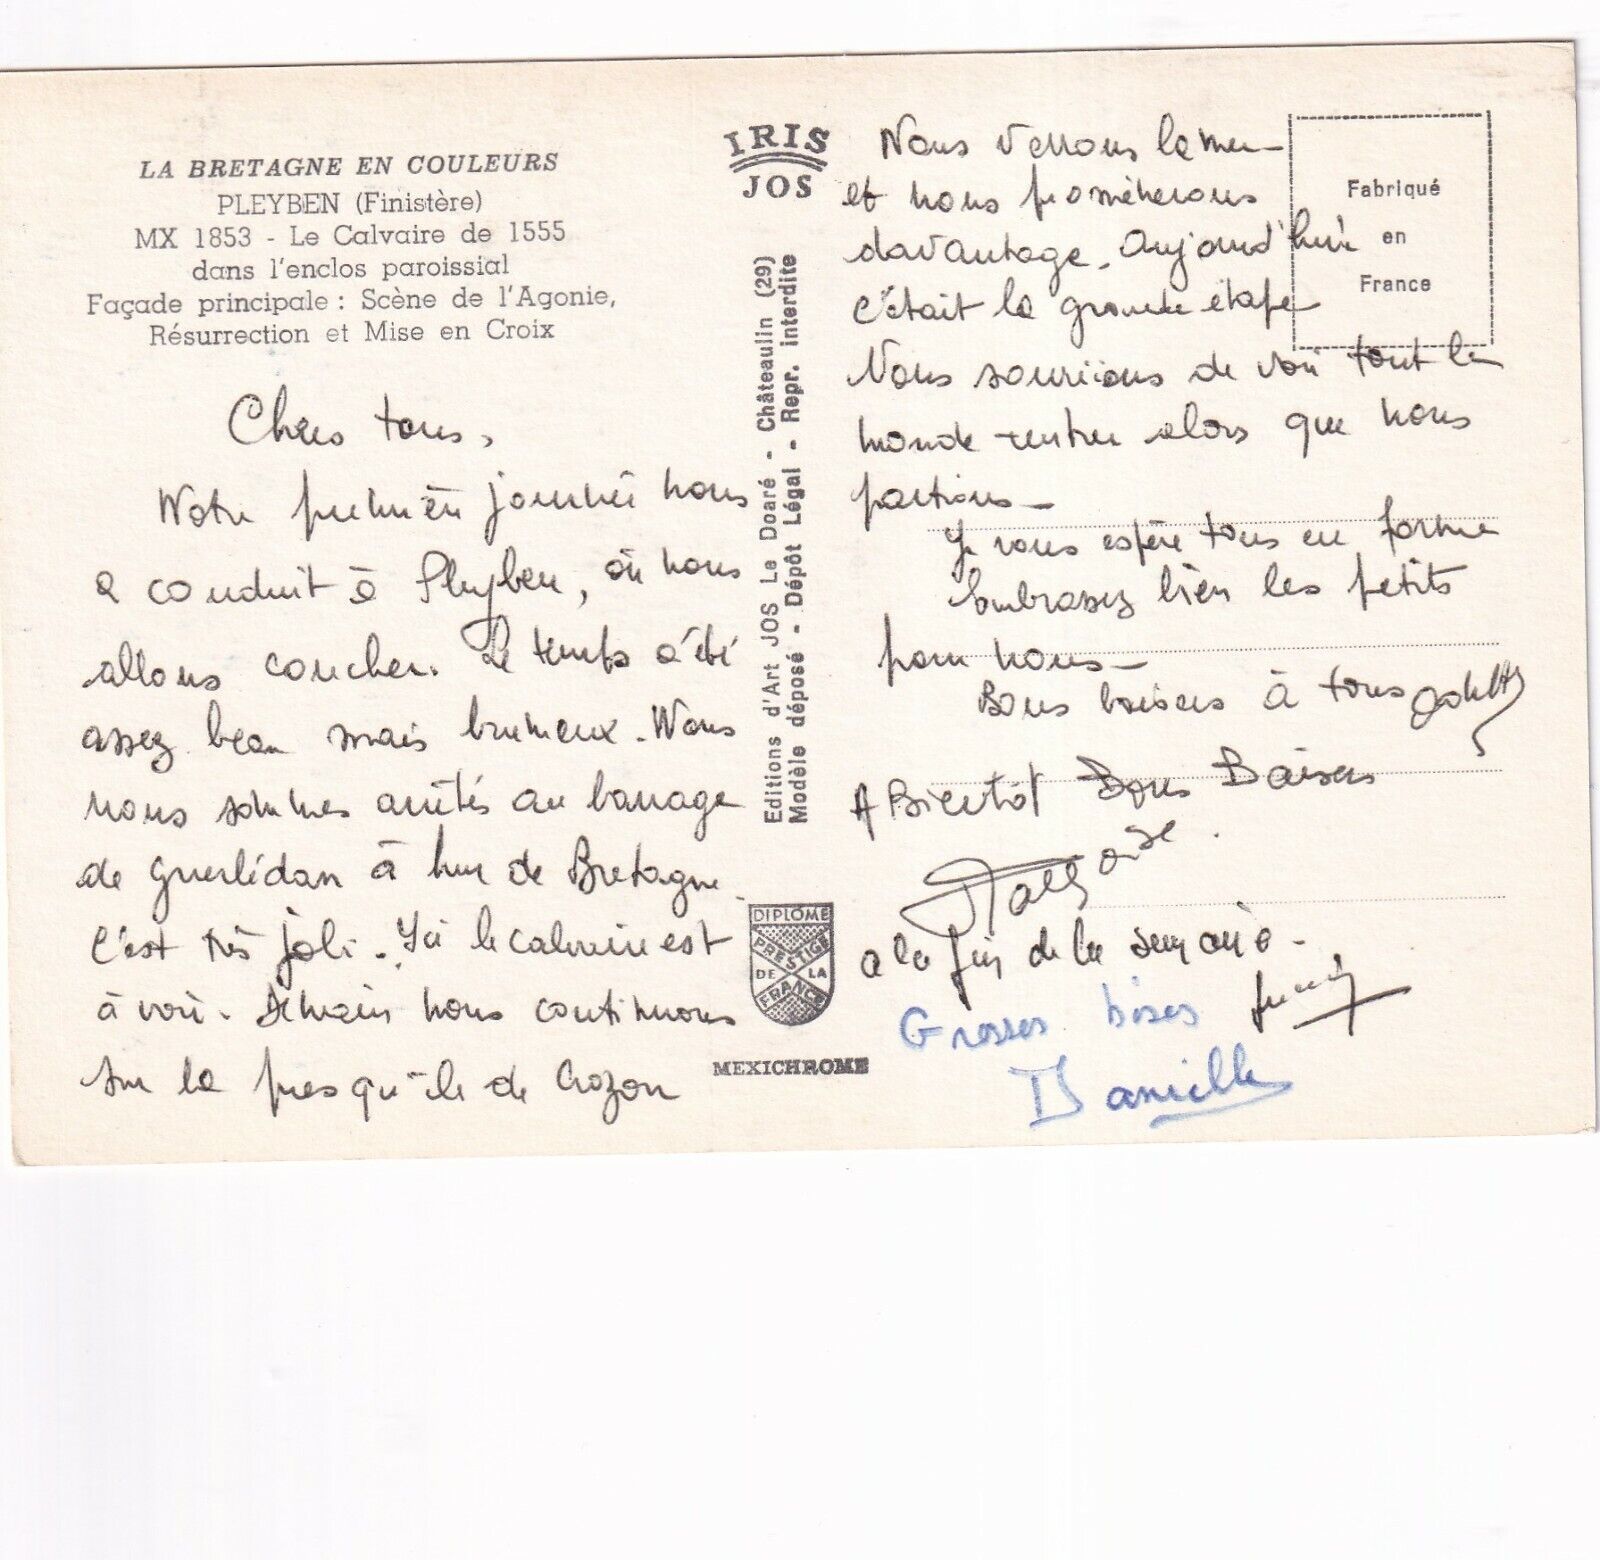 LA BRETAGNE EN COULEURS
PLEYBEN (Finistère)
MX 1853 - Le Calvaire de 1555
dans l'enclos paroissial
Façade principale : Scène de l'Agonie,
Résurrection et Mise en Croix
Chers tous,
Notre première journée nous
a conduit à Pleyben, où nous
allons coucher. Le temps a été
assez beau mais brumeux. Nous
nous sommes arrêtés au barrage
de Guerlédan à hur de Bretagne.
C'est très joli. Ici le calvaire est
à voir. Demain nous continuons
sur la presqu'île de Crozon
IRIS
JOS
Editions d'Art JOS Le Doaré - Châteaulin (29)
Modèle déposé - Dépôt Légal - Repr. interdite
DIPLÔME
PRESTIGE
DE LA
FRANCE
MEXICHROME
Fabriqué
en
France
Nous verrons la mer
et nous promènerons
davantage. Aujourd'hui
c'était la grande étape
Nous souriions de voir tout le
monde rentrer alors que nous
partions -
Je vous espère tous en forme
Embrassez bien les petits
pour nous -
Bons baisers à tous
A Bientot Bons Baisers
a la fin de la semaine -
Grosses bises
Danielle